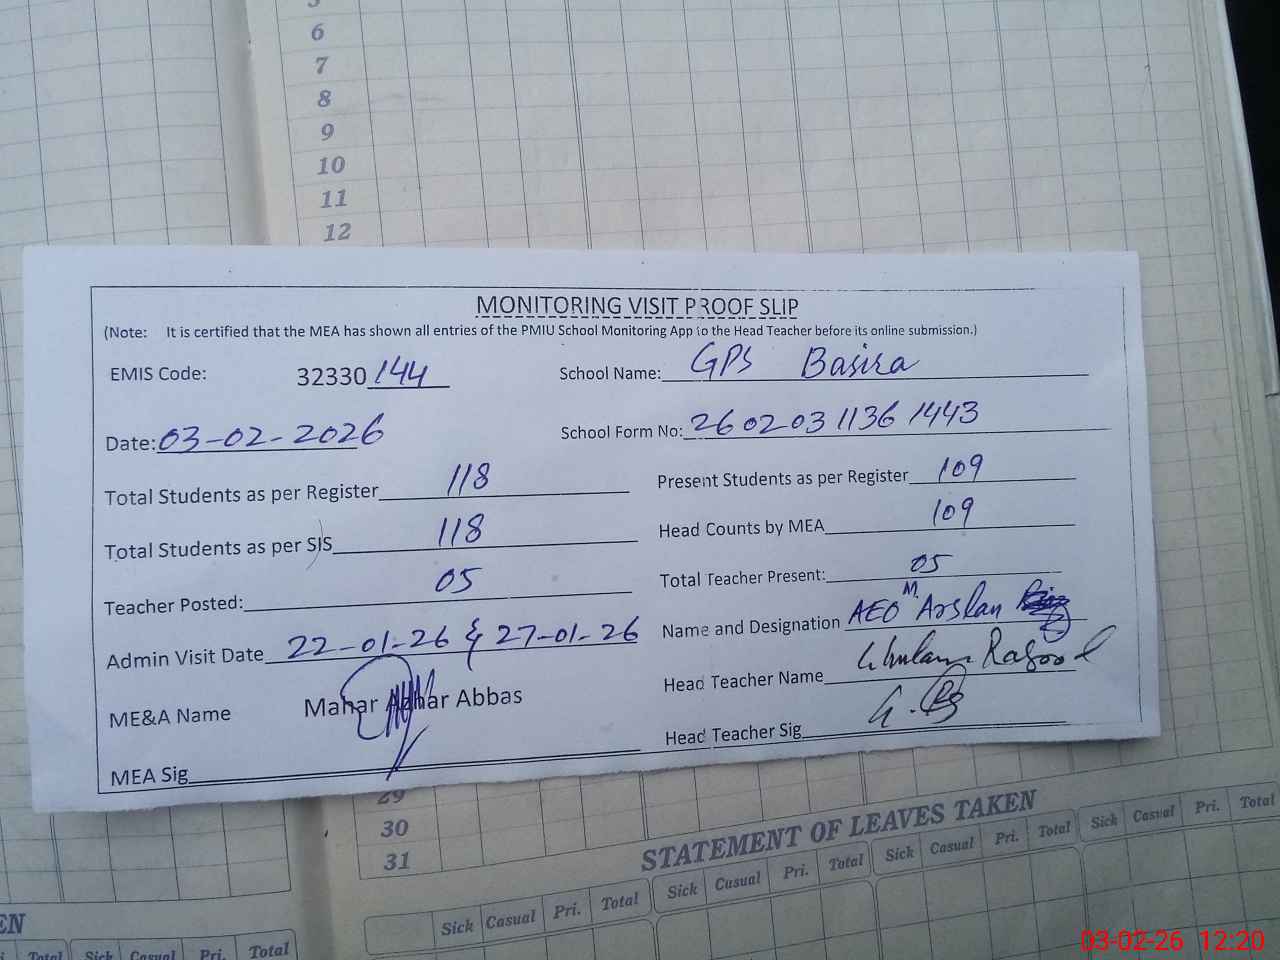 5
6
7
8
9
10
11
12
MONITORING VISIT PROOF SLIP
(Note: It is certified that the MEA has shown all entries of the PMIU School Monitoring App to the Head Teacher before its online submission.)
EMIS Code: 32330144 School Name: GPS Basira
Date: 03-02-2026 School Form No: 26020311361443
Total Students as per Register 118 Present Students as per Register 109
Total Students as per SIS 118 Head Counts by MEA 109
Teacher Posted: 05 Total Teacher Present: 05
Admin Visit Date 22-01-26 & 27-01-26 Name and Designation AEO M. Arslan
ME&A Name Mahar Abbas Head Teacher Name Ghulam Rasool
MEA Sig Head Teacher Sig
29
30
31
STATEMENT OF LEAVES TAKEN
Sick Casual Pri. Total Sick Casual Pri. Total Sick Casual Pri. Total Sick Casual Pri. Total
EN
Total Sick Casual Pri. Total
03-02-26 12:20